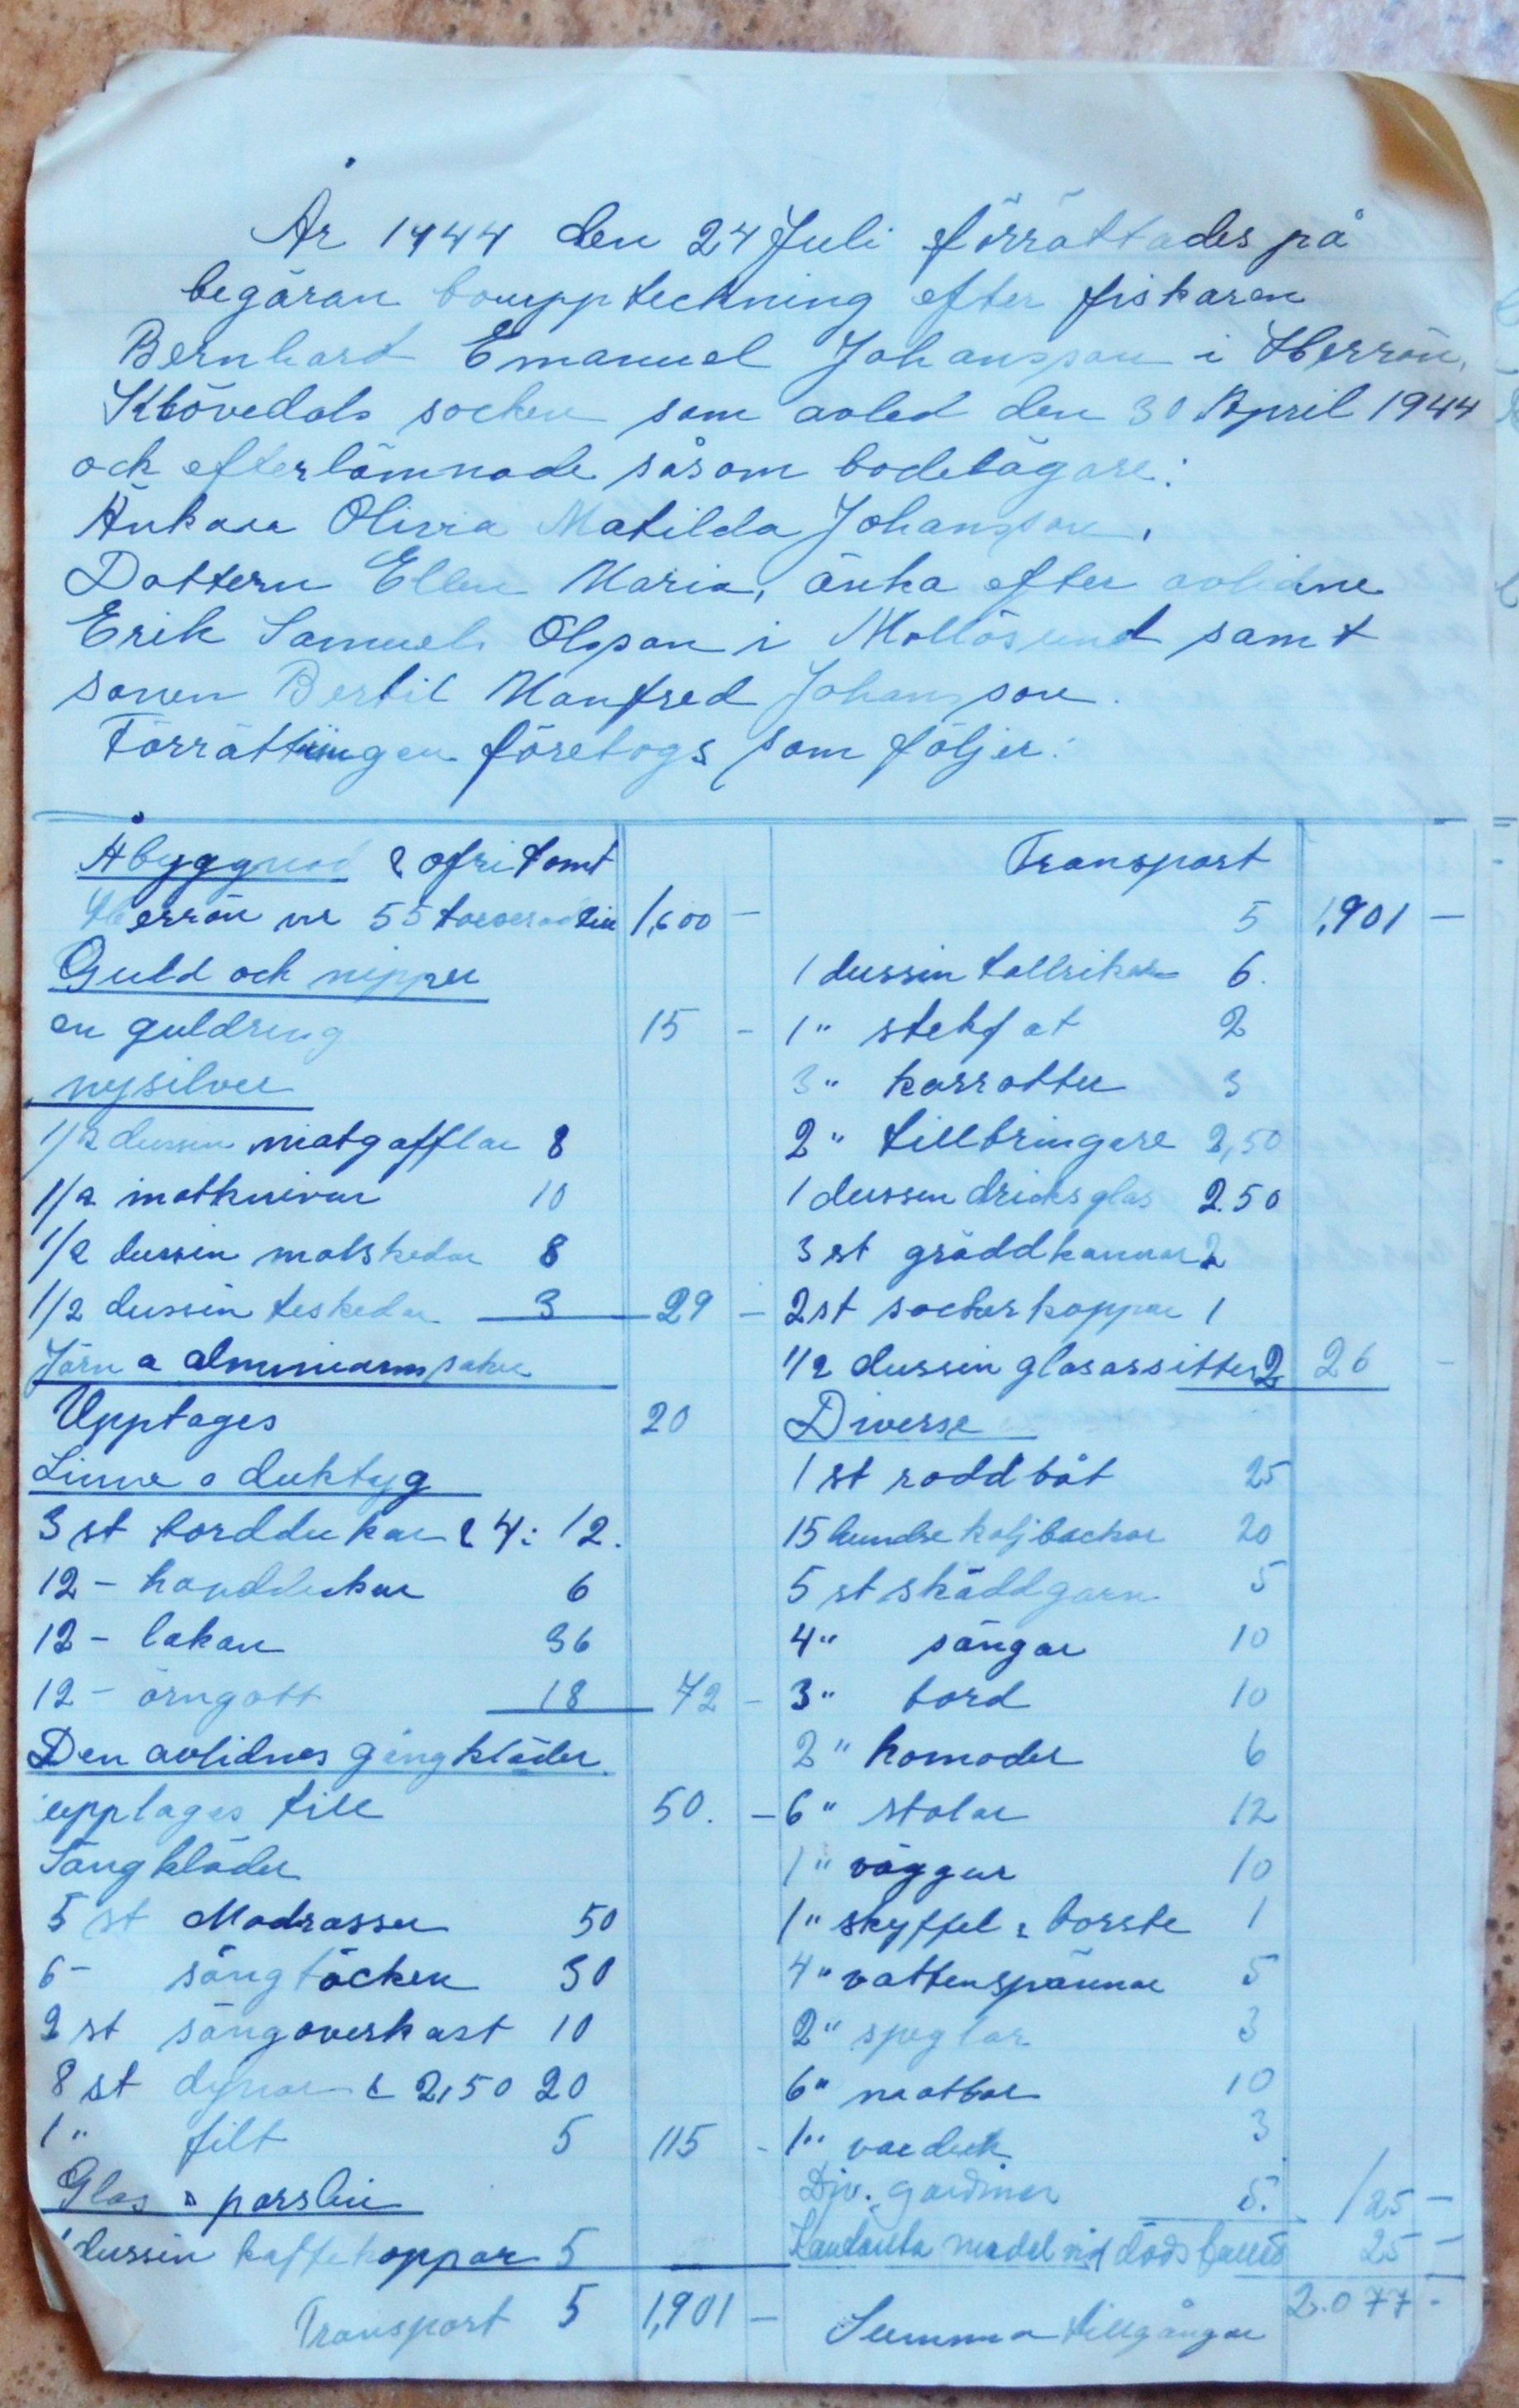 År 1944 den 24 Juli förrättades på
begäran bouppteckning efter fiskaren
Bernhard Emanuel Johansson i Herrön,
Klövedals socken som avled den 30 April 1944
och efterlämnade såsom bodelägare:
Änkan Olivia Matilda Johansson,
Dottern Ellen Maria, änka efter avlidne
Erik Samuel Olsson i Mollösund samt
sonen Bertil Manfred Johansson.
Förrättningen företogs som följer:
Åbyggnad å ofri tomt
Herrön nr 55 taxerad till 1,600 -
Guld och nipper
en guldring 15 -
nysilver
1/2 dussin matgafflar 8
1/2 matknivar 10
1/2 dussin matskedar 8
1/2 dussin teskedar 3 29 -
Järn o aluminiumsaker
Upptages 20
Linne o duktyg
3 st borddukar à 4: 12.
12 - handdukar 6
12 - lakan 36
12 - örngott 18 72 -
Den avlidnes gångkläder
upptages till 50. -
Sängkläder
5 st Madrasser 50
6 - sängtäcken 30
2 st sängöverkast 10
8 st dynor à 2,50 20
1 " filt 5 115 -
Glas o porslin
1 dussin kaffekoppar 5
Transport 5 1,901 -
Transport
5 1,901 -
1 dussin tallrikar 6.
1 " stekfat 2
3 " karrotter 3
2 " tillbringare 2,50
1 dussin dricksglas 2.50
3 st gräddkannor 2
2 st sockerkoppar 1
1/2 dussin glasassietter 2 26 -
Diverse
1 st roddbåt 25
15 hundra koljbackor 20
5 st skäddgarn 5
4 " sängar 10
3 " bord 10
2 " komoder 6
6 " stolar 12
1 " väggur 10
1 " skyffel o borste 1
4 " vattenspännar 5
2 " speglar 3
6 " mattor 10
1 " vaxduk 3
Div. gardiner 5. 125 -
Kontanta medel vid dödsfallet 25 -
Summa tillgångar 2.077 -